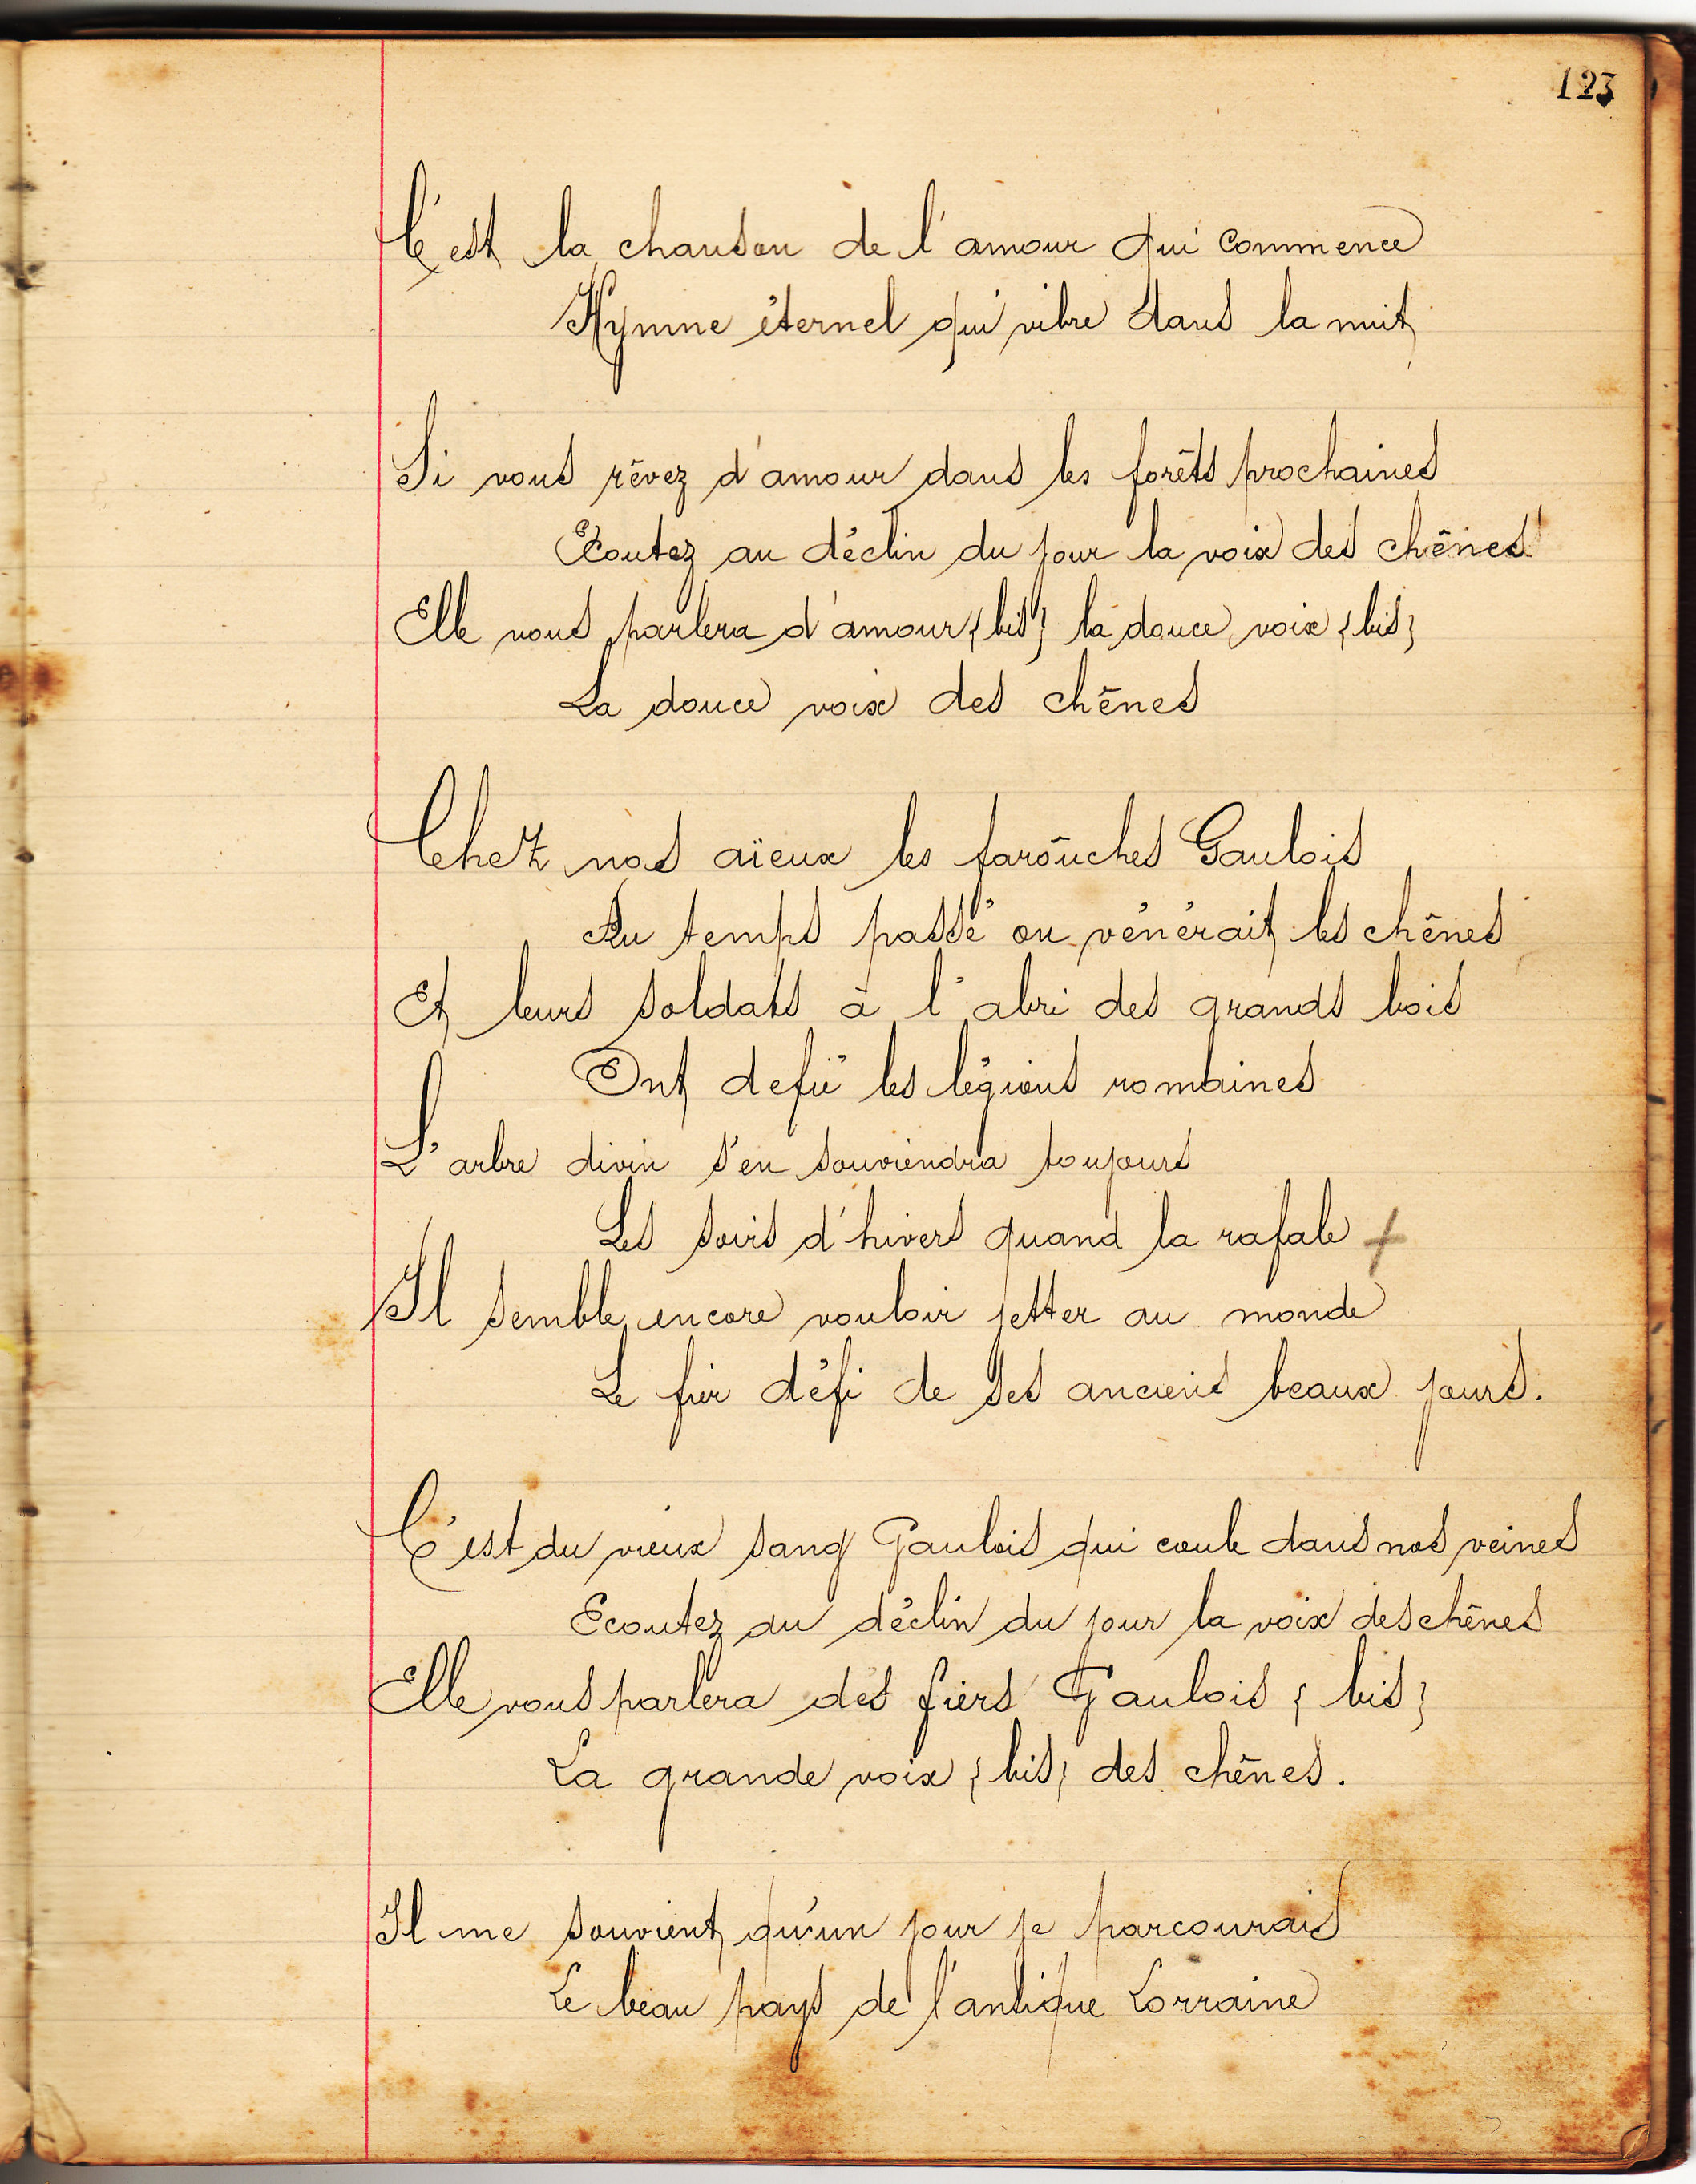 123
C'est la chanson de l'amour qui commence
Hymne éternel qui vibre dans la nuit
Si vous rêvez d'amour dans les forêts prochaines
Ecoutez au déclin du jour la voix des chênes
Elle vous parlera d'amour {bis} la douce voix {bis}
La douce voix des chênes
Chez nos aïeux les farouches Gaulois
Au temps passé on vénérait les chênes
Et leurs soldats à l'abri des grands bois
Ont defié les légions romaines
L'arbre divin s'en souviendra toujours
Les soirs d'hivers quand la rafale +
Il semble encore vouloir jetter au monde
Le fier défi de ses anciens beaux jours.
C'est du vieux sang Gaulois qui coule dans nos veines
Ecoutez au déclin du jour la voix des chênes
Elle vous parlera des fiers Gaulois {bis}
La grande voix {bis} des chênes.
Il me souvient qu'un jour je parcourais
Le beau pays de l'antique Lorraine